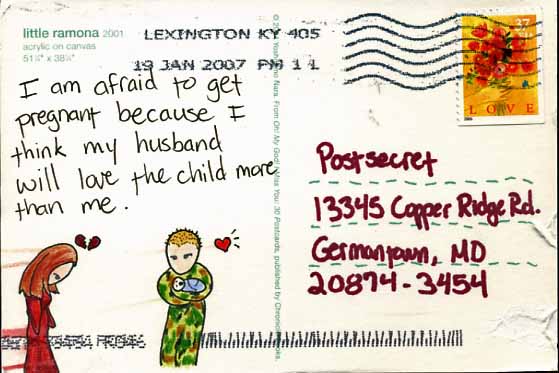 little ramona 2001
acrylic on canvas
51¼" x 38¼"
LEXINGTON KY 405
19 JAN 2007 PM 1 L
I am afraid to get
pregnant because I
think my husband
will love the child more
than me.
37
LOVE
Postsecret
13345 Copper Ridge Rd.
Germantown, MD
20874-3454
Nara. From Oh! My God! I Miss You: 30 Postcards, published by Chronicle Books.